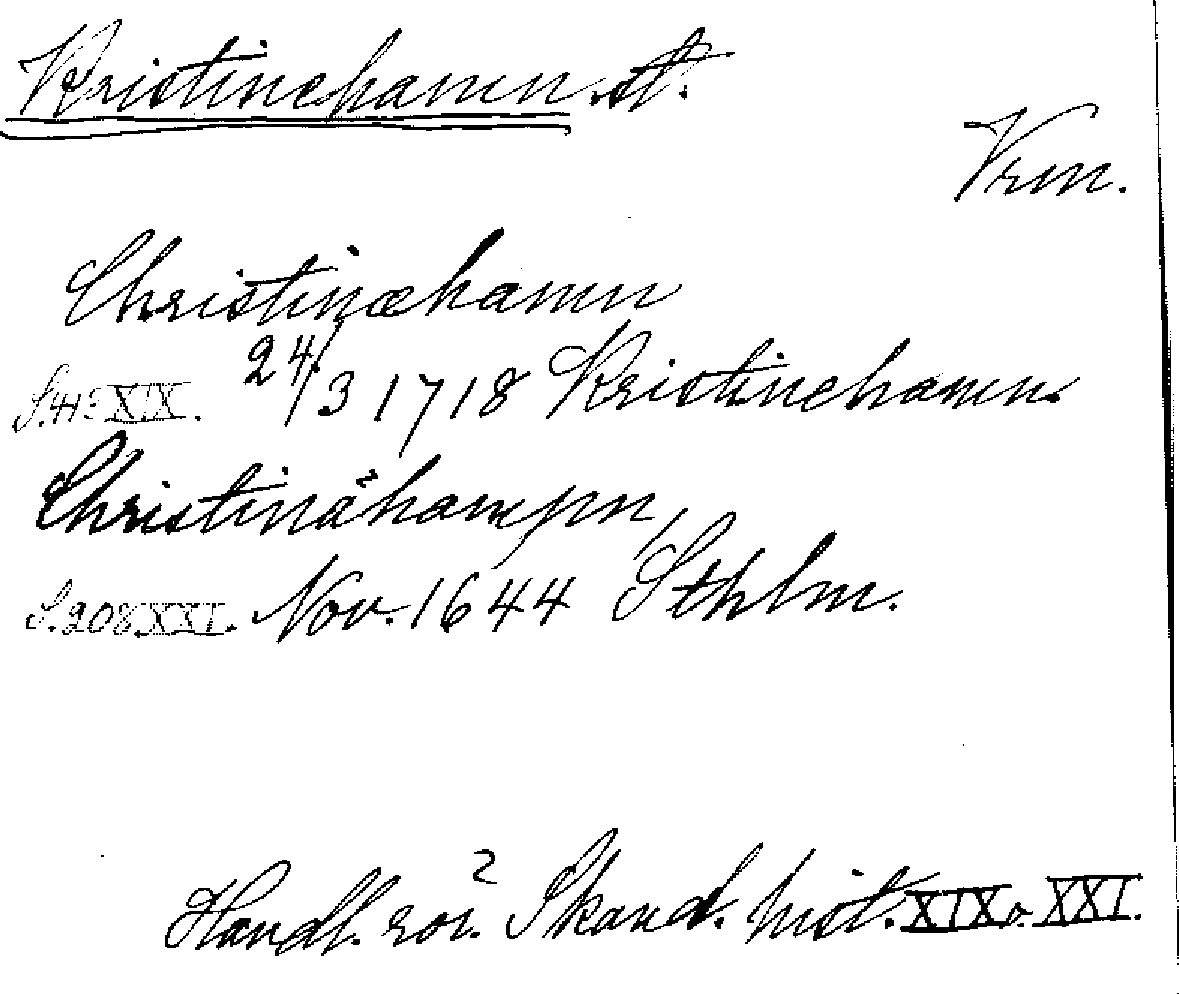 Kristinehamn st.
Vrm.
Christinæhamn
S. 413 XIX. 24/3 1718 Kristinehamn.
Christinähampn,
S. 208 XXI. Nov. 1644 Sthlm.
Handl. rör. Skand. hist. XIX o. XXI.